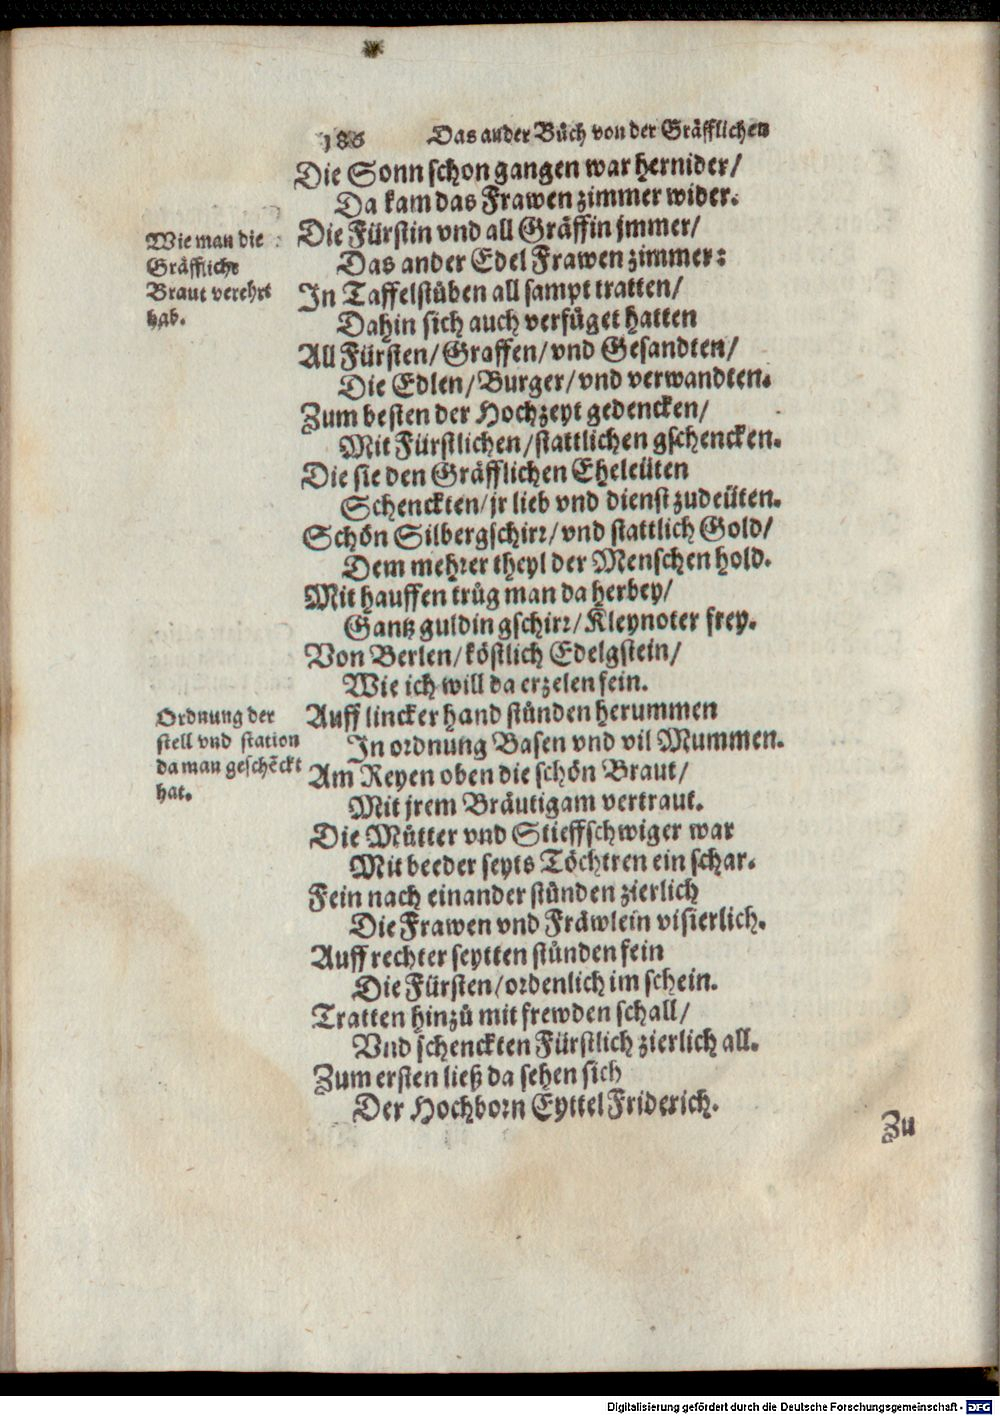 186 Das ander Bůch von der Gräfflichen
Die Sonn schon gangen war hernider/
Da kam das Frawenzimmer wider.
Wie man die
Gräffliche
Braut verehrt
hab.
Die Fürstin vnd all Gräffin jmmer/
Das ander Edel Frawenzimmer:
In Taffelstüben all sampt tratten/
Dahin sich auch verfüget hatten
All Fürsten/Graffen/vnd Gesandten/
Die Edlen/Burger/vnd verwandten.
Zum besten der Hochzeyt gedencken/
Mit Fürstlichen/stattlichen gschencken.
Die sie den Gräfflichen Eheleüten
Schenckten/jr lieb vnd dienst zudeüten.
Schön Silbergschirr/vnd stattlich Gold/
Dem mehrer theyl der Menschen hold.
Mit hauffen trůg man da herbey/
Gantz guldin gschirr/Kleynoter frey.
Von Berlen/köstlich Edelgstein/
Wie ich will da erzelen fein.
Ordnung der
stell vnd station
da man geschẽckt
hat.
Auff lincker hand stůnden herummen
In ordnung Basen vnd vil Mummen.
Am Reyen oben die schön Braut/
Mit jrem Bräutigam vertraut.
Die Můtter vnd Stieffschwiger war
Mit beeder seyts Töchtren ein schar.
Fein nach einander stůnden zierlich
Die Frawen vnd Fräwlein visierlich.
Auff rechter seytten stůnden fein
Die Fürsten/ordenlich im schein.
Tratten hinzů mit frewden schall/
Vnd schenckten Fürstlich zierlich all.
Zum ersten ließ da sehen sich
Der Hochborn Eyttel Friderich.
Zu
Digitalisierung gefördert durch die Deutsche Forschungsgemeinschaft - DFG